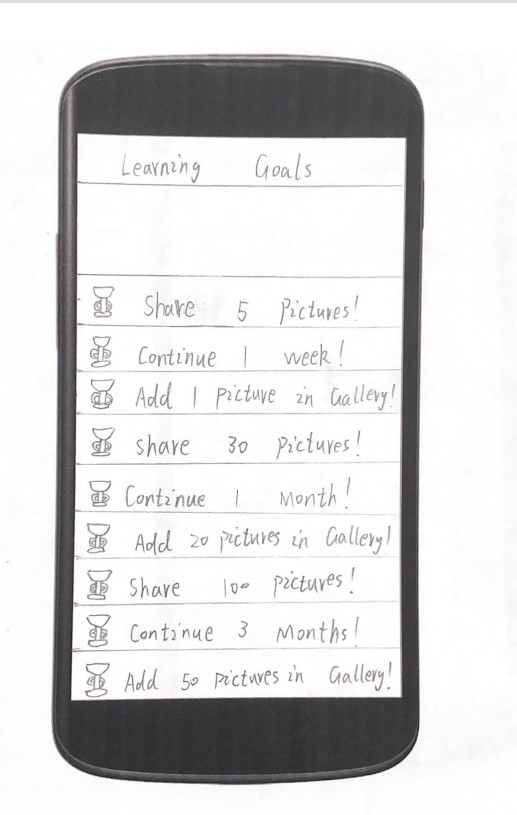 Learning Goals
Share 5 pictures!
Continue 1 week!
Add 1 picture in Gallery!
share 30 pictures!
Continue 1 Month!
Add 20 pictures in Gallery!
Share 100 pictures!
Continue 3 Months!
Add 50 pictures in Gallery!